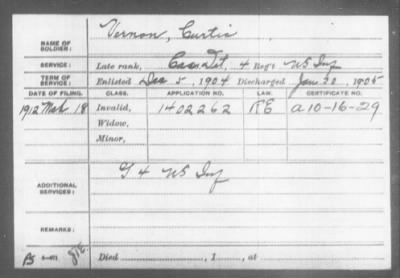 NAME OF SOLDIER: Vernon, Curtis
SERVICE: Late rank, Cas Det, 4 Reg't US Inf
TERM OF SERVICE: Enlisted Dec 5, 1904 Discharged Jan. 20, 1905
DATE OF FILING. CLASS. APPLICATION NO. LAW. CERTIFICATE NO.
1912 Mch 18 Invalid, 1402262 RE a 10-16-29
Widow,
Minor,
ADDITIONAL SERVICES: G 4 US Inf
REMARKS:
Died , 1 , at